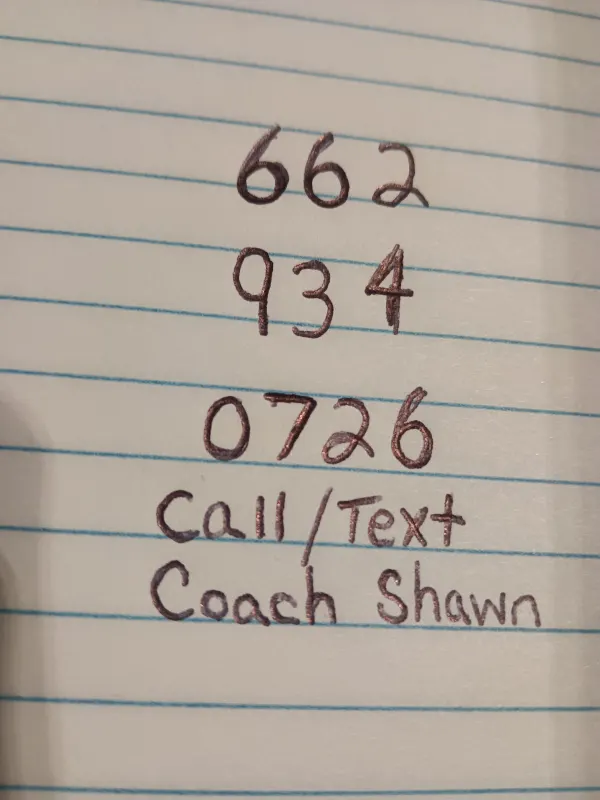 662
934
0726
Call/Text
Coach Shawn